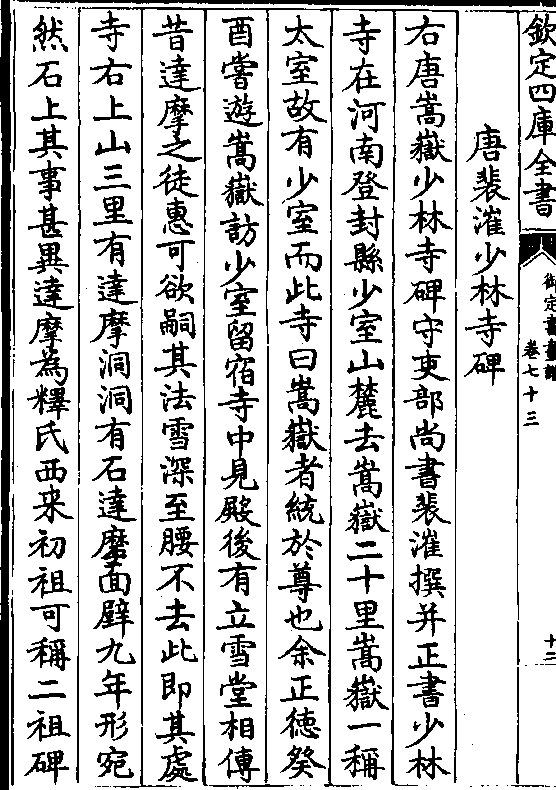 欽定四庫全書
御定書畫譜
卷七十三
十二
唐裴漼少林寺碑
右唐嵩嶽少林寺碑守吏部尚書裴漼撰并正書少林
寺在河南登封縣少室山麓去嵩嶽二十里嵩嶽一稱
太室故有少室而此寺曰嵩嶽者統於尊也余正徳癸
酉嘗遊嵩嶽訪少室留宿寺中見殿後有立雪堂相傳
昔達摩之徒惠可欲嗣其法雪深至腰不去此即其處
寺右上山三里有達摩洞洞有石達磨面壁九年形宛
然石上其事甚異達摩為釋氏西来初祖可稱二祖碑